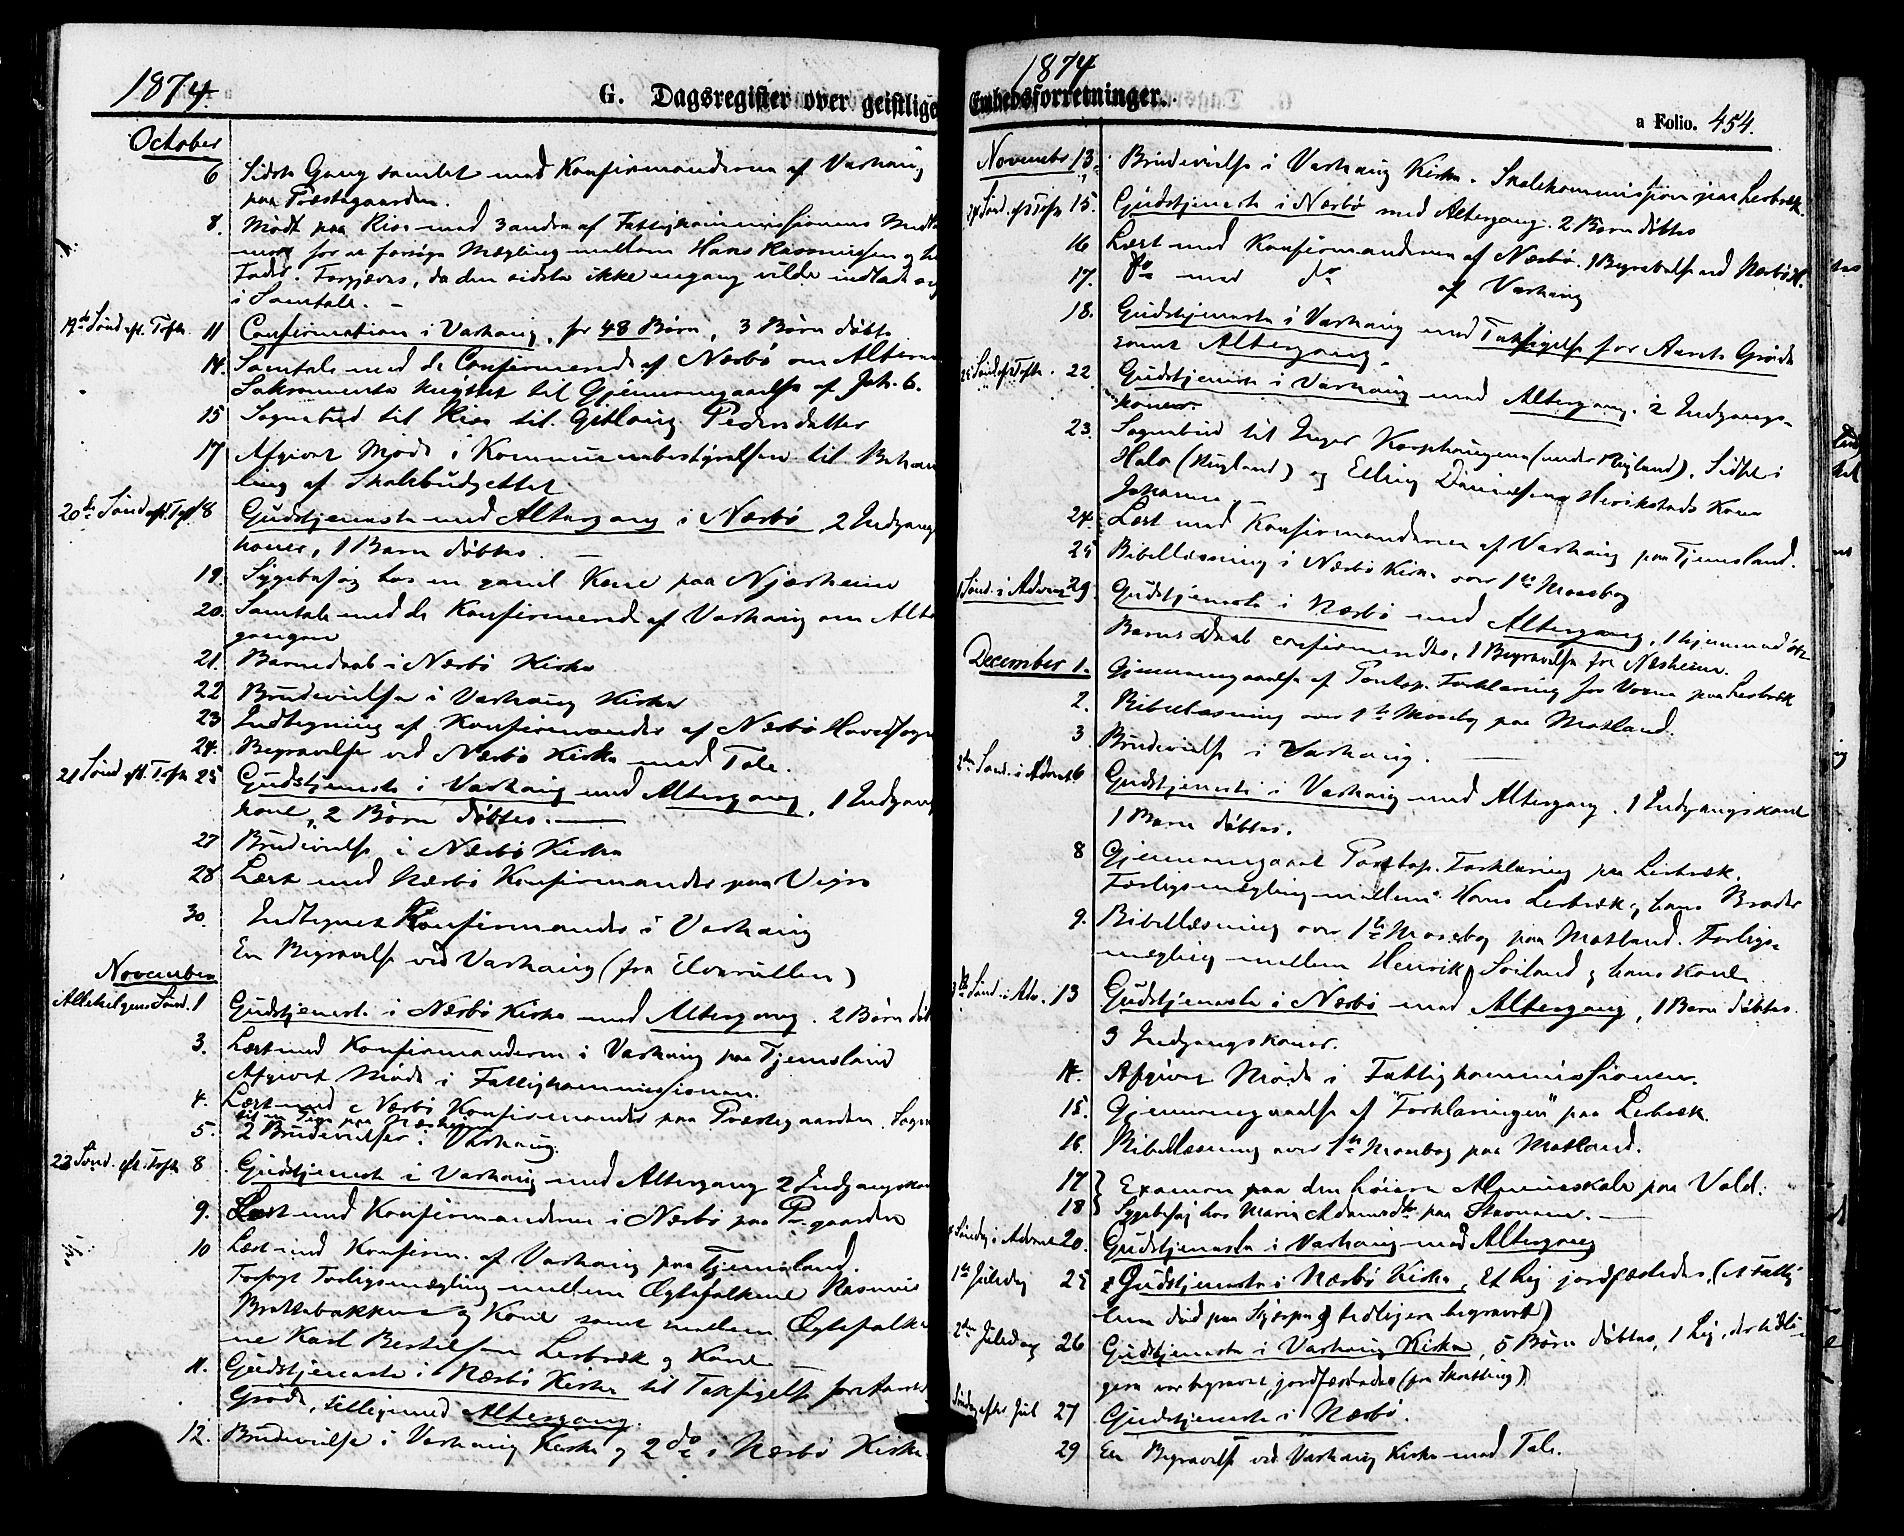 1874.
G. Dagsregister over geistlige
October
6 Sidste Gang samlet med Konfirmanderne af Varhaug
paa Præstegaarden.
8. Mødt paa Rios med 3 andre af Fattigkommissionens Medlem-
mer for at forsøge Mægling mellem Hans Rasmussen og
Fader. Forgjæves, da den sidste ikke engang vilde indlade sig
i Samtale. –
19de Sønd. eft. Trefn. 11 Confirmation i Varhaug, for 48 Børn, 3 Børn døbte
14. Samtale med de Confirmerede af Nærbø om Alterens
Sakramente knyttet til Gjennemgaaelse af Joh. 6.
15 Sognebud til Rios til Gitlaug Pedersdatter
17 Afgivet Møde i Kommunebestyrelsen til Behand
ling af Skolebudgettet
20de Sønd eft. Tref. 18 Gudstjeneste med Altergang i Nærbø, 2 Indgangs
koner, 1 Barn døbtes. –
19. Sygebesøg hos en gaml Kone paa Njærheim
20. Samtale med de Konfirmerede af Varhaug om Alter
gangen
21. Barnedaab i Nærbø Kirke
22 Brudevielse i Varhaug Kirke
23 Indtegning af Konfirmander af Nærbø Hovedsogn
24. Begravelse ved Nærbø Kirke med Tale.
21 Sønd eft. Trefn 25 Gudstjeneste i Varhaug med Altergang, 1 Indgangs
kone, 2 Børn døbtes. –
27 Brudevielse i Nærbø Kirke
28 Læst med Nærbø Konfirmander paa Vigre
30. Indtegnet Konfirmander i Varhaug
En Begravelse ved Varhaug (fra Elverullen)
November
Allehelgens Sønd. 1 Gudstjeneste i Nærbø Kirke med Altergang. 2 Børn døbt
3. Læst med Konfirmanderne i Varhaug paa Tjemsland
Afgivet Møde i Fattigkommissionen.
4. Læst med Nærbø Konfirmander paa Præstegaarden. Sogne
5. 2 Brudevielser i Varhaug.
23 Sønd. eft. Trefn 8 Gudstjeneste i Varhaug med Altergang 2 Indgangskon
9. Læst med Konfirmanderne i Nærbø paa Pr.gaarden
10 Læst med Konfirm. af Varhaug paa Tjemsland.
Forsøgt Forligsmægling mellem Ægtefolkene Rasmus
Brattebakken og Kone samt mellem Ægtefolke
ne Karl Bertelsen Lerbræk og Kone –
11. Gudstjeneste i Nærbø Kirke til Taksigelse for Aarets
Grøde, tilligemed Altergang.
12. Brudevielse i Varhaug Kirke og 2 do i Nærbø Kirke.
1874
Embedsforretninger.
a Folio. 454.
November 13. Brudevielse i Varhaug Kirke. Skolekommission paa Lerbræk.
24 Sønd. eft Trefn 15. Gudstjeneste i Nærbø med Altergang. 2 Børn døbtes
16 Læst med Konfirmanderne af Nærbø. 1 Begravelse ved Nærbø K.
17. do med do af Varhaug
18. Gudstjeneste i Varhaug med Taksigelse for Aarets Grøde
samt Altergang.
25 Sønd eft Trefn. 22 Gudstjeneste i Varhaug med Altergang. 2 Indgangs-
koner.
23. Sognebud til Inger Kaaphaugene (under Rygland), Sidsel i
Halo (Rugland) og Elling Danielsens Henrikstads Kone
Johanne. –
24. Læst med Konfirmanderne af Varhaug paa Tjemsland.
25 Bibellæsning i Nærbø Kirke over 1ste Mosebog
1 Sønd. i Advent 29. Gudstjeneste i Nærbø med Altergang, 1 hjemmedøbt
Barns Daab confirmertes, 1 Begravelse fra Næsheim.
December 1. Gjennemgaaelse af Pontop. Forklaring for Voxne paa Lerbræk
2. Bibellæsning over 1ste Mosebog paa Motland.
3 Brudevielse i Varhaug.
2den Sønd. i Advent 6 Gudstjeneste i Varhaug med Altergang. 1 Indgangskone
1 Barn døbtes.
8 Gjennemgaaet Pontop. Forklaring paa Lerbræk.
Forligsmægling mellem Hans Lerbræk og hans Broder
9. Bibellæsning over 1ste Mosebog paa Motland. Forligs-
mægling mellem Henrik Soiland og hans Kone
3de Sønd. i Adv. 13 Gudstjeneste i Nærbø med Altergang, 1 Barn døbtes.
3 Indgangskoner.
14. Afgivet Møde i Fattigkommissionen.
15. Gjennemgaaelse af "Forklaringen" paa Lerbræk.
16. Bibellæsning over 1ste Mosebog paa Motland.
17 } Examen paa den høiere Almueskole paa Vold.
18 } Sygebesøg hos Maria Adamsdtr paa Stavnem. –
4 Søndag i Advent 20. Gudstjeneste i Varhaug med Altergang
1ste Juledag 25 Gudstjeneste i Nærbø Kirke, Et Lig jordfæstedes, (et Fattig
lem død paa Sjørpe) tidligere begravet)
2den Juledag 26 Gudstjeneste i Varhaug Kirke, 5 Børn døbtes, 1 Lig, der tidli-
gere var begravet, jordfæstedes (fra Skatting)
Søndag efter Jul 27 Gudstjeneste i Nærbø.
29 En Begravelse ved Varhaug Kirke med Tale.